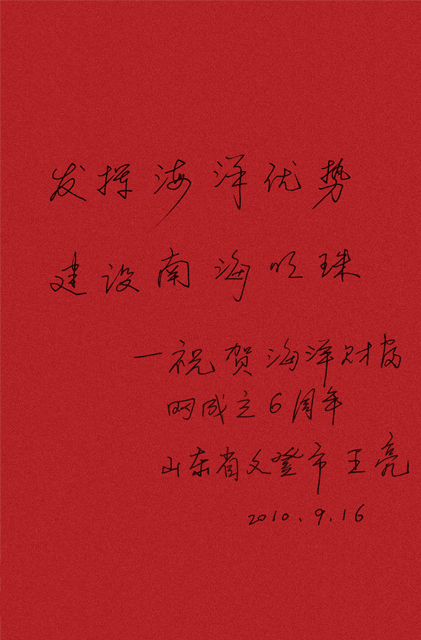 发挥海洋优势
建设南海明珠
一祝贺海洋财富
网成立6周年
山东省文登市 王亮
2010.9.16